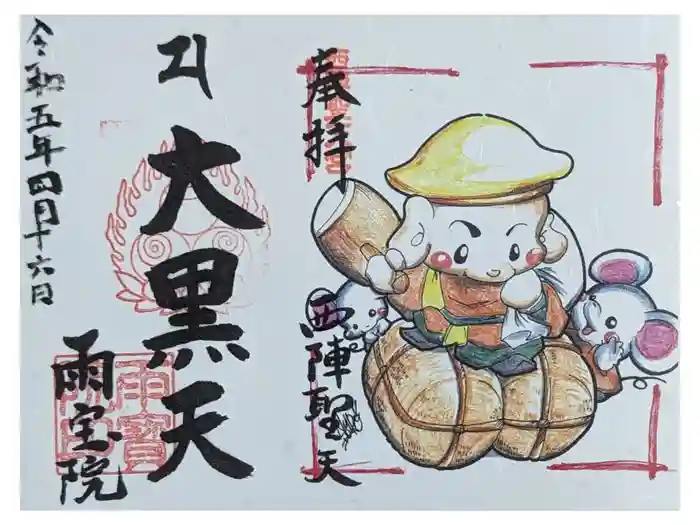 奉拝
西陣聖天
𑖦
大黒天
雨宝院
雨寶院印
令和五年四月十六日